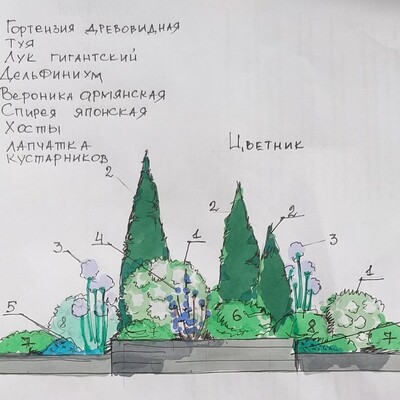 Гортензия древовидная
Туя
Лук гигантский
Дельфиниум
Вероника армянская
Спирея японская
Хосты
лапчатка
кустарников
Цветник
2
2
2
3
4
1
3
1
5
8
6
8
7
7